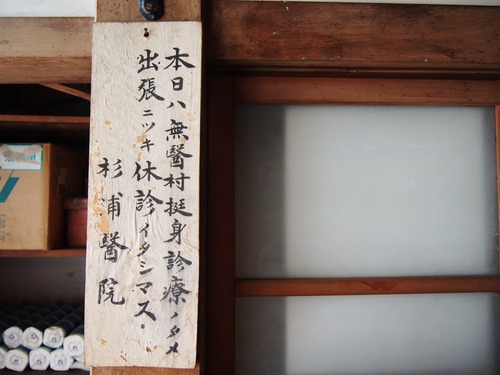 本日ハ無醫村挺身診療ノタメ
出張ニツキ休診イタシマス
杉浦醫院